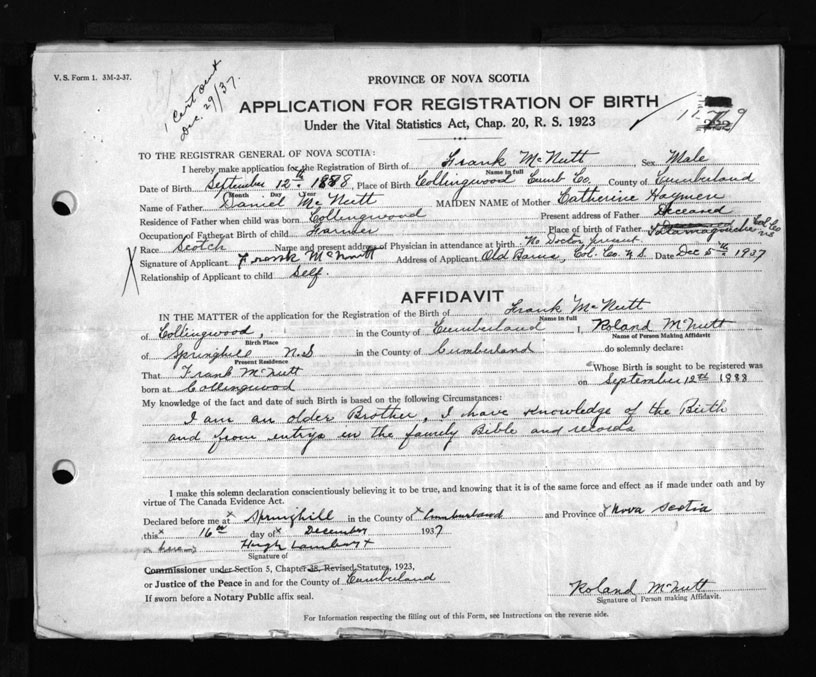 V. S. Form 1. 3M-2-37.
1 Cert sent
Dec. 29/37.
PROVINCE OF NOVA SCOTIA
APPLICATION FOR REGISTRATION OF BIRTH
Under the Vital Statistics Act, Chap. 20, R. S. 1923
TO THE REGISTRAR GENERAL OF NOVA SCOTIA:
I hereby make application for the Registration of Birth of Frank McNutt Sex Male
Name in full
Date of Birth September 12th 1888, Place of Birth Collingwood Cumb Co. County of Cumberland
Day Year
Name of Father Daniel McNutt MAIDEN NAME of Mother Catherine Haymen
Residence of Father when child was born Collingwood Present address of Father Deceased
Occupation of Father at Birth of child Farmer Place of birth of Father Tatamagouche Col. Co NS
Race Scotch Name and present address of Physician in attendance at birth No Doctor present
Signature of Applicant Frank McNutt Address of Applicant Old Barns, Col. Co. N.S. Date Dec 5th 1937
Relationship of Applicant to child Self.
AFFIDAVIT
IN THE MATTER of the application for the Registration of Birth of Frank McNutt
Name in full
of Collingwood, in the County of Cumberland I, Roland McNutt
Birth Place Name of Person Making Affidavit
of Springhill N.S in the County of Cumberland do solemnly declare:
Present Residence
That Frank McNutt Whose Birth is sought to be registered was
born at Collingwood on September 12th 1888
My knowledge of the fact and date of such Birth is based on the following Circumstances:
I am an older Brother, I have knowledge of the Birth
and from entrys in the family Bible and records
I make this solemn declaration conscientiously believing it to be true, and knowing that it is of the same force and effect as if made under oath and by
virtue of The Canada Evidence Act.
Declared before me at Springhill in the County of Cumberland and Province of Nova Scotia
this 16th day of December 1937
Hugh Lambert
Signature of
Commissioner under Section 5, Chapter 38, Revised Statutes, 1923,
or Justice of the Peace in and for the County of Cumberland
If sworn before a Notary Public affix seal.
Roland McNutt
Signature of Person making Affidavit.
For Information respecting the filling out of this Form, see Instructions on the reverse side.